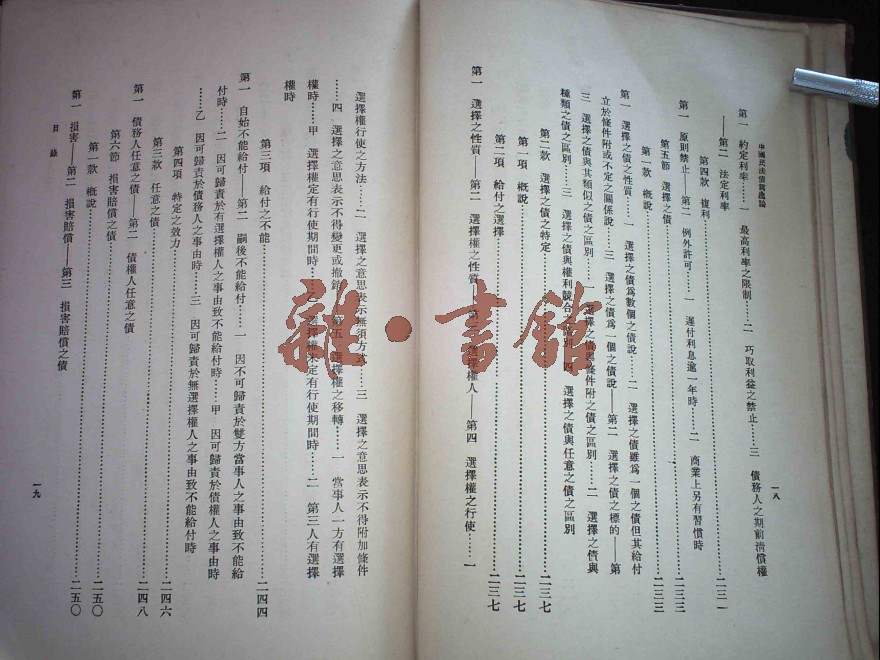 中國民法債篇總論
一八
第一　約定利率……一　最高利率之限制……二　巧取利益之禁止……三　債務人之期前清償權
——第二　法定利率……二三一
第四款　複利……二三三
第一　原則禁止——第二　例外許可……一　遲付利息逾一年時……二　商業上另有習慣時
第五節　選擇之債……二三三
第一款　概說……二三三
第一　選擇之債之性質……一　選擇之債爲數個之債說……二　選擇之債雖爲一個之債但其給付
立於條件附或不定之關係說……三　選擇之債爲一個之債說——第二　選擇之債之標的——第
三　選擇之債與其類似之債之區別……一　選擇之債與條件附之債之區別……二　選擇之債與
種類之債之區別……三　選擇之債與權利競合之區別……四　選擇之債與任意之債之區別
第二款　選擇之債之特定……二三七
第一項　概說……二三七
第二項　給付之選擇……二三七
第一　選擇之性質——第二　選擇權之性質——第三　選擇權人——第四　選擇權之行使……一
選擇權行使之方法……二　選擇之意思表示無須方式……三　選擇之意思表示不得附加條件
……四　選擇之意思表示不得變更或撤銷——第五　選擇權之移轉……一　當事人一方有選擇
權時……甲　選擇權定有行使期間時……乙　選擇權未定有行使期間時……二　第三人有選擇
權時
第三項　給付之不能……二四四
第一　自始不能給付——第二　嗣後不能給付……一　因不可歸責於雙方當事人之事由致不能給
付時……二　因可歸責於有選擇權人之事由致不能給付時……甲　因可歸責於債權人之事由時
……乙　因可歸責於債務人之事由時……三　因可歸責於無選擇權人之事由致不能給付時
第四項　特定之效力……二四六
第三款　任意之債……二四八
第一　債務人任意之債——第二　債權人任意之債
第六節　損害賠償之債……二五〇
第一款　概說……二五〇
第一　損害——第二　損害賠償——第三　損害賠償之債
目錄
一九
雜·書館